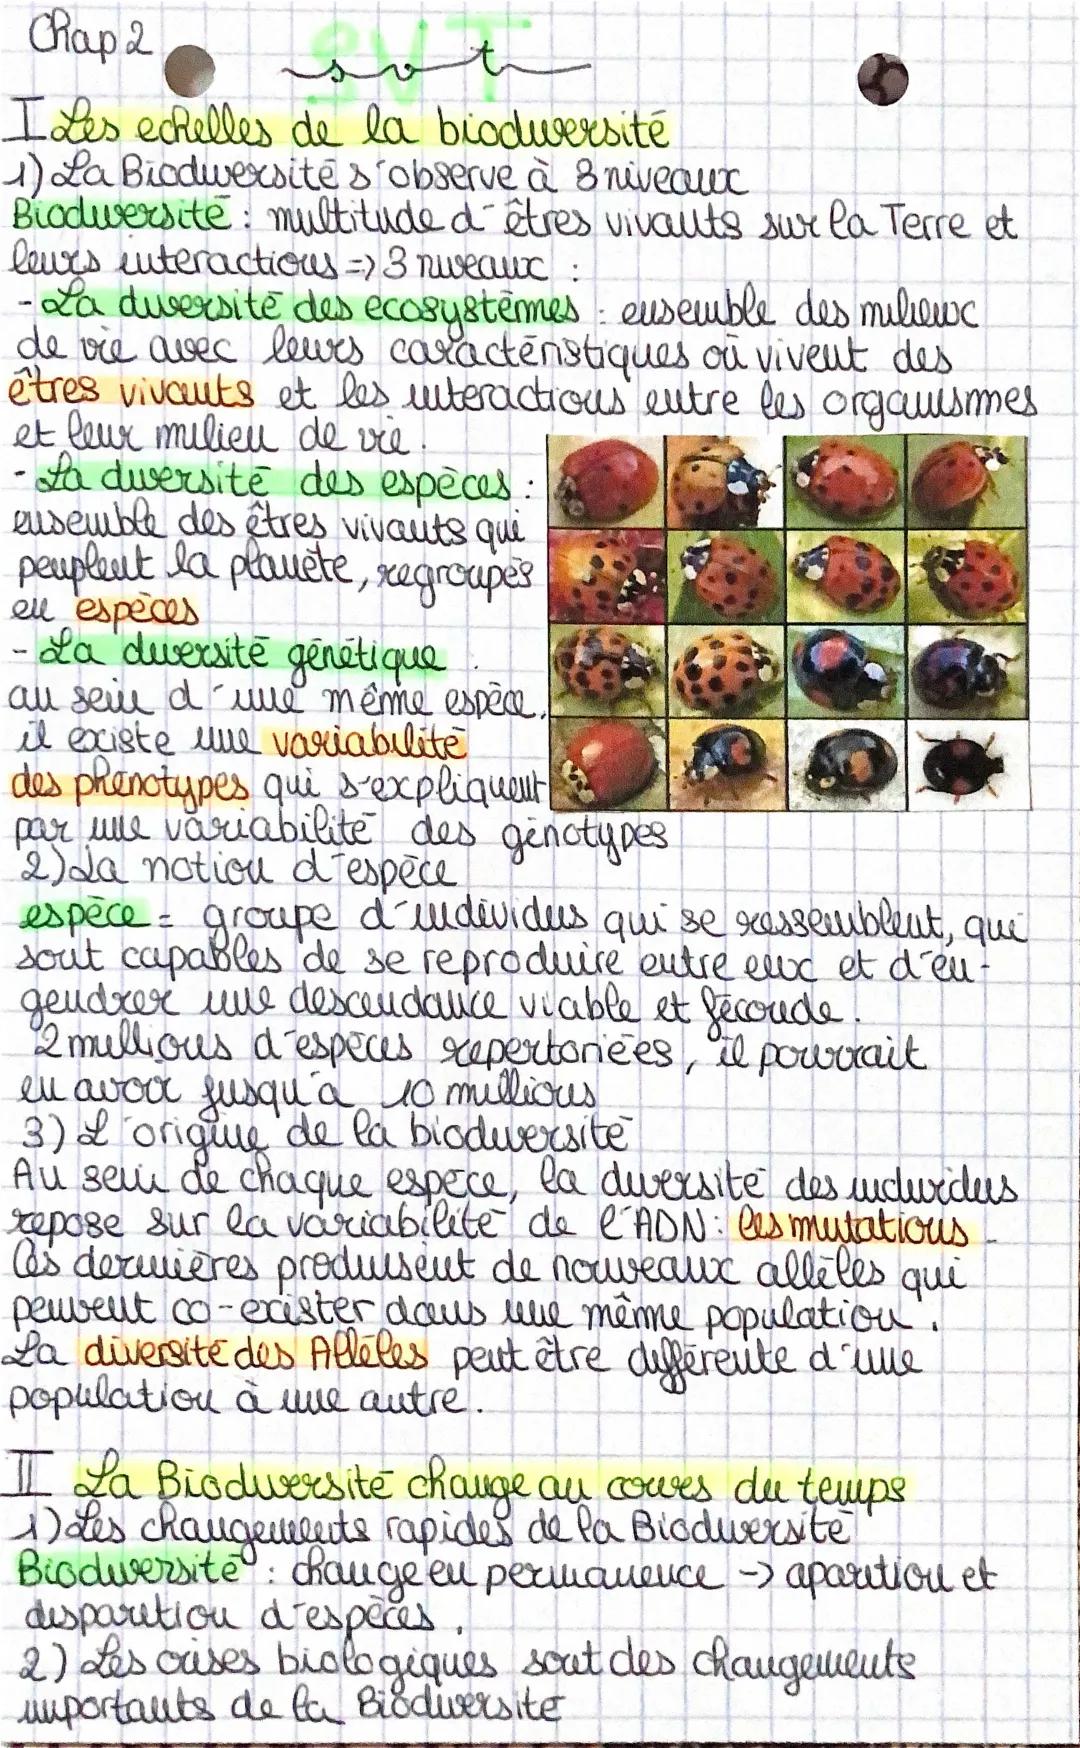 Chap 2
SVT
svt
I Les echelles de la biodiversité
1) La Biodiversité s'observe à 3 niveaux
Biodiversité : multitude d'êtres vivants sur la Terre et
leurs interactions => 3 niveaux :
- La diversité des ecosystèmes : ensemble des milieux
de vie avec leurs caractéristiques où vivent des
êtres vivants et les interactions entre les organismes
et leur milieu de vie.
- La diversité des espèces :
ensemble des êtres vivants qui
peuplent la planète, regroupés
en espèces
- La diversité génétique
au sein d'une même espèce,
il existe une variabilité
des phénotypes qui s'expliquent
par une variabilité des génotypes
2) La notion d'espèce
espèce = groupe d'individus qui se ressemblent, qui
sont capables de se reproduire entre eux et d'en-
gendrer une descendance viable et féconde.
2 millions d'espèces repertoriées, il pourrait
en avoir jusqu'à 10 millions
3) L'origine de la biodiversité
Au sein de chaque espèce, la diversité des individus
repose sur la variabilité de l'ADN : les mutations.
Ces dernières produisent de nouveaux allèles qui
peuvent co-exister dans une même population.
La diversité des Allèles peut être différente d'une
population à une autre.
II La Biodiversité change au cours du temps
1) Les changements rapides de la Biodiversité
Biodiversité : change en permanence -> aparition et
disparition d'espèces.
2) Les crises biologiques sont des changements
importants de la Biodiversité